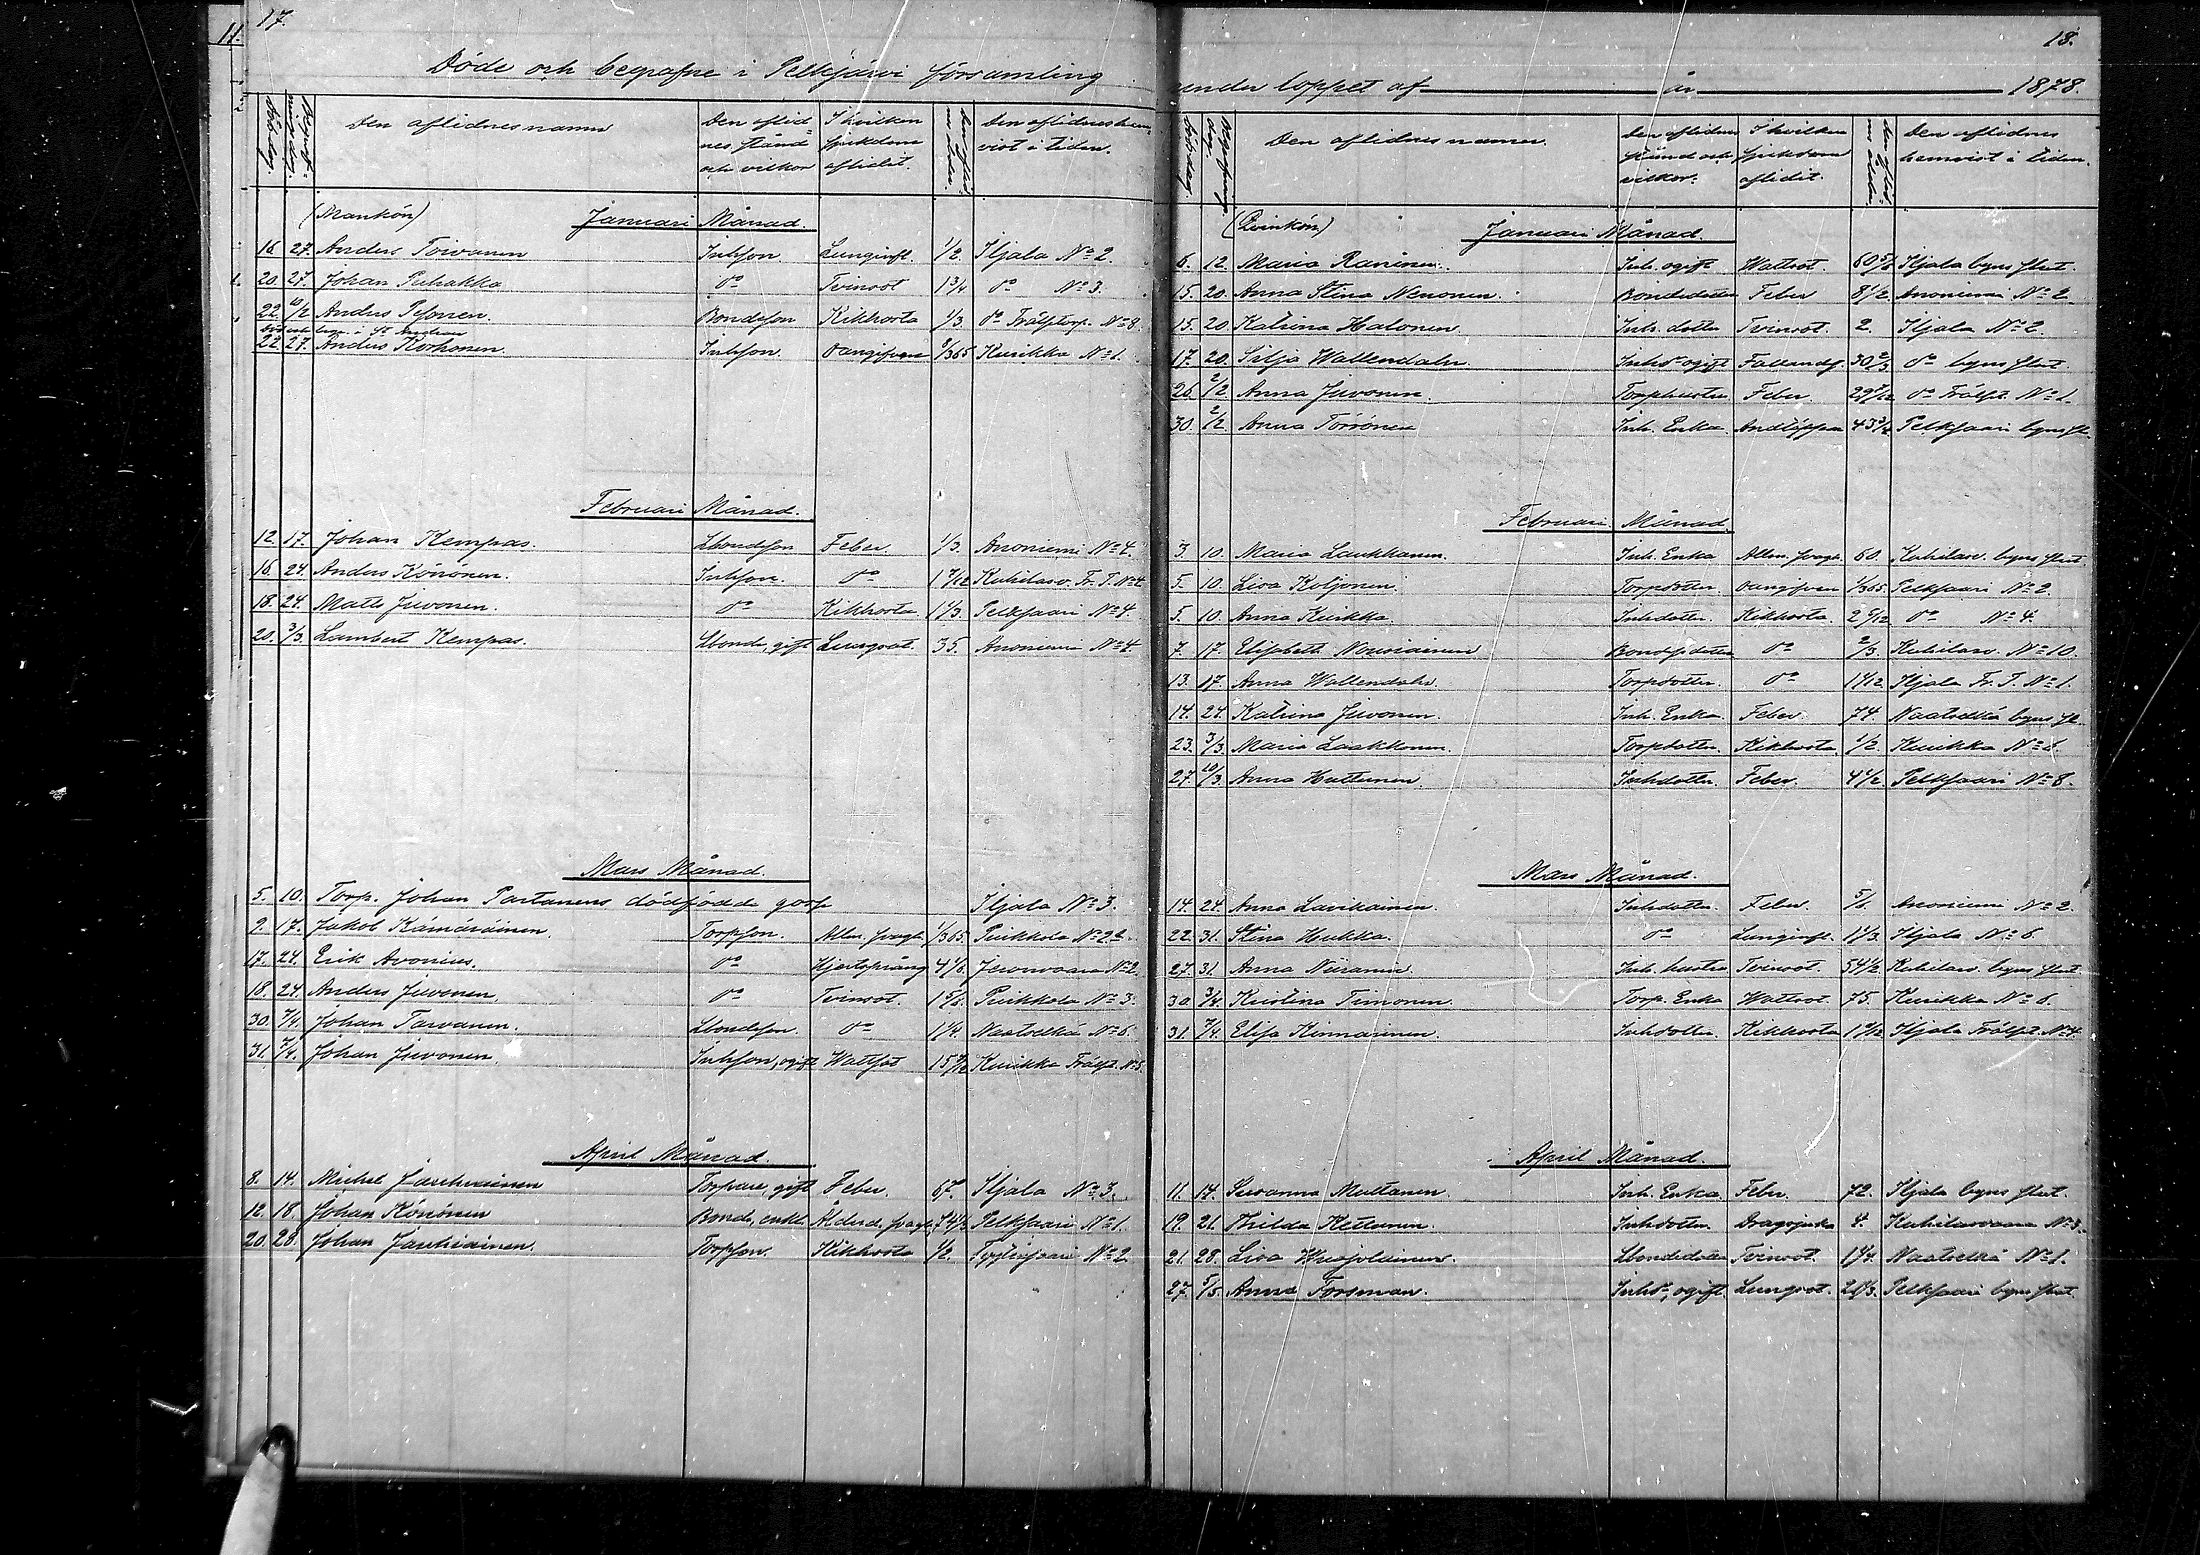 17.
11.
Döde och begrafne i Pelkjärvi församling
Dödsdag. Begrafningsdag. Den aflidnes namn Den aflidnes stånd och vilkor I hvilken sjukdom aflidit. Den aflidnes ålder. Den aflidnes hemvist i tiden.
(Mankön) Januari Månad.
16. 27. Anders Toivanen Inhson. Lunginfl. 1/2 Iljala No 2.
20. 27. Johan Puhakka do Tvinsot 1 3/4 do No 3.
22. 10/2 Anders Pesonen. Bondeson Kikhosta 1/3. do Frälstorp. No 8.
22. 27. Anders Korhonen. Inhson. oangifven /365 Kuikka No 1.
Februari Månad.
12. 17. Johan Kempas. Lbondson Feber. 1/3. Anoniemi No 4.
16. 24. Anders Könönen. Inhson. do 1 /12 Kuhilasv. Fr. T. No 4.
18. 24. Matts Juvonen. do Kikhosta 1 1/3. Pelkjaari No 4.
20. 3/3. Lambert Kempas. Lbonde, gift Lungsot. 35. Anoniemi No 4.
Mars Månad.
5. 10. Torp. Johan Partanens dödfödde goss Iljala No 3.
9. 17. Jakob Kämäräinen. Torpson. Allm. svagh. 1/365. Puikkola No 2.
17. 24. Erik Avonius. do Hjertsprång 4 1/6. Jesonvaara No 2.
18. 24. Anders Juvonen do Tvinsot. 1 5/6. Puikkola No 3.
30. 7/4. Johan Tarvanen. Lbondson. do 1 1/4. Naatselkä No 6.
31. 7/4. Johan Juvonen. Inhson, ogift Wattsot 15 /12 Kuikka Frälst. No 5.
April Månad.
8. 14. Michel Jauhiainen Torpare, gift Feber. 67. Iljala No 3.
12. 18. Johan Könönen Bonde, enkl. Ålderd. svagh. 74 1/2 Pelkjaari No 1.
20. 28. Johan Jauhiainen. Torpson. Kikhosta 1/2. No 2
18.
under loppet af år 1878.
Dödsdag. Begrafnings dag. Den aflidnes namn. Den aflidnes stånd och vilkor. I hvilken sjukdom aflidit. Den aflidnes ålder. Den aflidnes hemvist i tiden.
(Qvinkön) Januari Månad.
6. 12. Maria Raninen. Inh. ogift Wattsot. 60 5/6 Iljala byns slut.
15. 20. Anna Stina Nenonen. Bondedotter Feber 8 1/2 Anoniemi No 2.
15. 20 Katrina Halonen. Inh. dotter Tvinsot. 2. Iljala No 2.
17. 20. Silja Wallendahr Inhs ogift Fallands. 30 2/3 do byns slut.
26. 2/2 Anna Juvonen. Torphustru Feber. 29 /12 do Frälst. No 1.
30. 2/2 Anna Törrönen Inh. Enka. Andtäppa 43 3/4 Pelkjaari byns sl.
Februari Månad.
3. 10. Maria Laukkanen. Inh. Enka Allm. svagh. 60. Kuhilasv. byns slut
5. 10. Lisa Koljonen. Torpdotter oangifven 1/365 Pelkjaari No 2.
5. 10. Anna Kuikka. Inhdotter. Kikhosta 2 5/12 do No 4.
7. 17. Elisabeth Nousiainen Bondsdotter do 2/3. Kuhilasv. No 10.
13. 17. Anna Wallendahr. Torpdotter. do 1 /12 Iljala Fr. T. No 1.
14. 24. Katrina Juvonen. Inh. Enka. Feber 74. Naatselkä byns sl.
23. 3/3. Maria Laakkonen. Torpdotter. Kikhosta 1/2. Kuikka No 1.
27. 10/3. Anna Huttunen. Inhdotter. Feber. 4 1/2 Pelkjaari No 8.
Mars Månad.
14. 24. Anna Lavikainen. Inhdotter. Feber. 5/6. Anoniemi No 2.
22. 31. Stina Hukka. do Lunginfl. 1 1/3. Iljala No 6.
27. 31. Anna Niiranen. Inh. hustru Tvinsot. 54 1/2 Kuhilasv. byns slut
30. 3/4. Kristina Timonen. Torp. Enka Wattsot 75. Kuikka No 6.
31. 7/4. Elisa Kinnarinen. Inhdotter. Kikhosta 1 /12 Iljala Frälst. No 4.
April Månad.
11. 14. Susanna Mattanen. Inh. Enka Feber 72. Iljala byns slut.
19. 21. Thilda Kettunen. Inhdotter. Dragsjuka 4. Kuhilasvaara No 3.
21. 28. Lisa Huopolainen. Lbondedotter Tvinsot. 1 1/4. Naatselkä No 1.
27. 5/5. Anna Forsman. Inhs, ogift. Lungsot. 21 1/3. Pelkjaari byns slut.